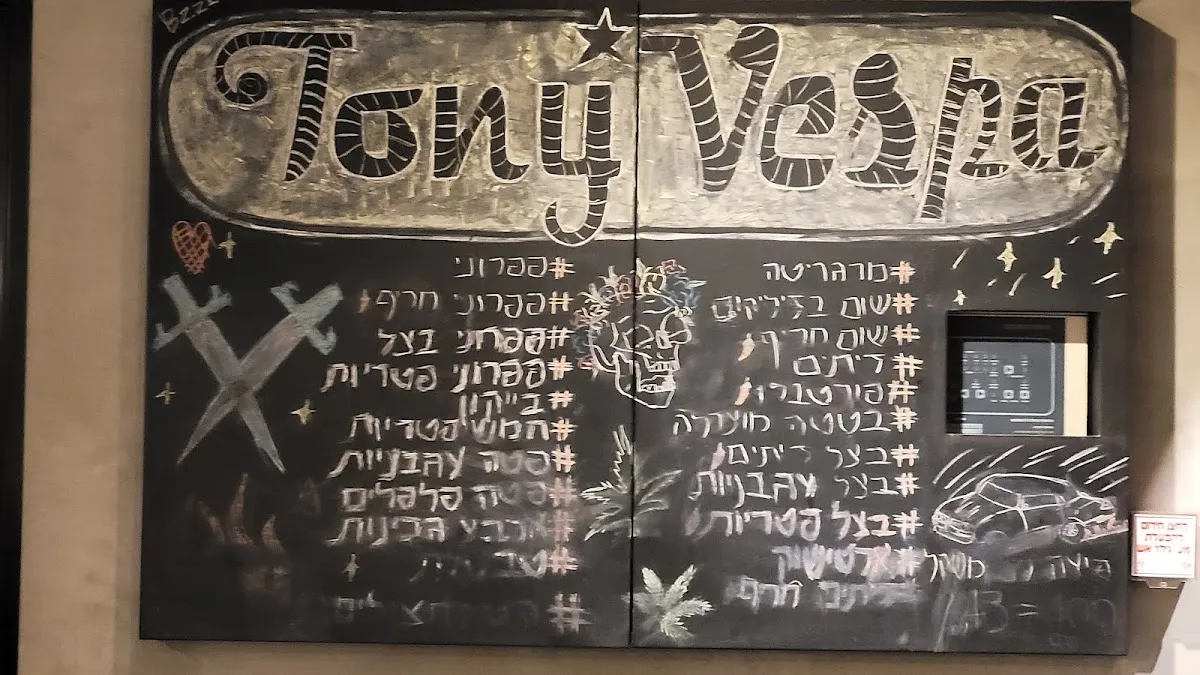 Bzzz
Tony Vespa
#מרגריטה
#שום בזיליקום
#שום חריף
#זיתים
#פורטבלו
#בטטה מוצרלה
#בצל זיתים
#בצל עגבניות
#בצל פטריות
#ארטישוק
חריף
#פפרוני
#פפרוני חריף
#פפרוני בצל
#פפרוני פטריות
#בייקון
#חמש פטריות
#פטה עגבניות
#פטה פלפלים
#ארבע גבינות
פיצה
משקל